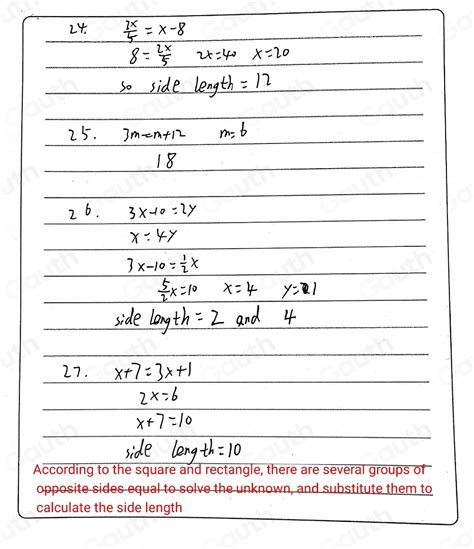 24. 3x/5 = x-8
8 = 2x/5 2x=40 x=20
so side length = 12
25. 3m=m+12 m=6
18
26. 3x-10=2y
x=4y
3x-10=1/2x
5/2x=10 x=4 y=1
side length = 2 and 4
27. x+7=3x+1
2x=6
x+7=10
side length=10
According to the square and rectangle, there are several groups of
opposite sides equal to solve the unknown, and substitute them to
calculate the side length